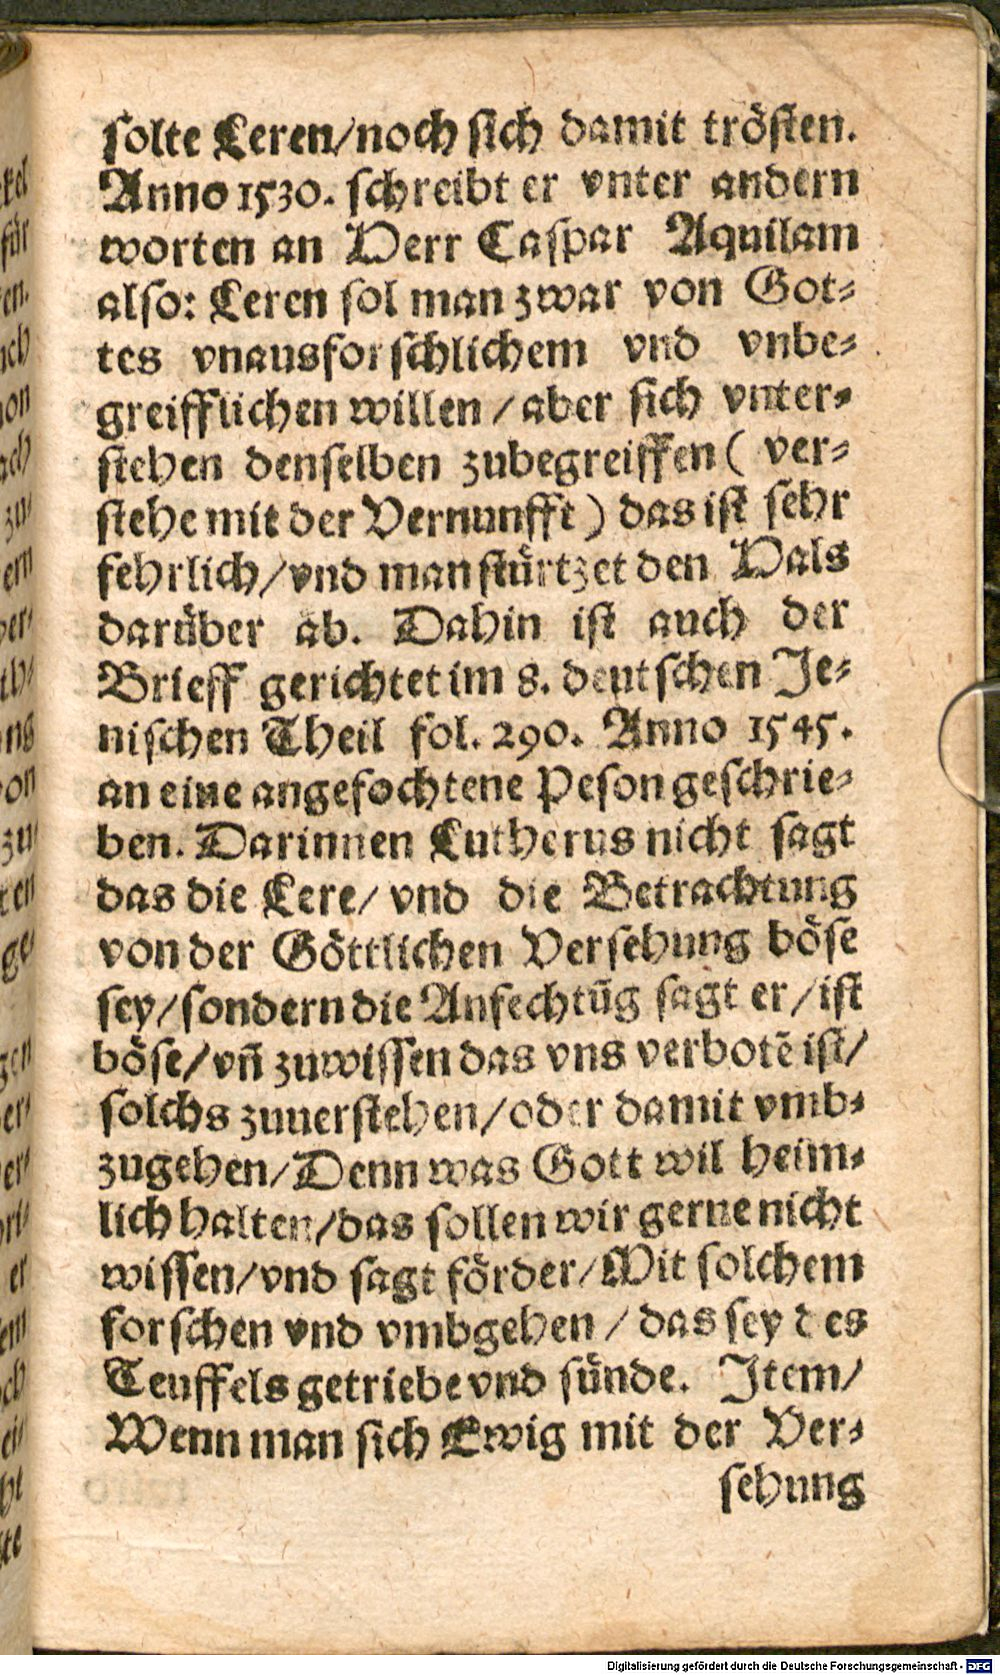 solte Leren/noch sich damit trösten.
Anno 1530. schreibt er vnter andern
worten an Herr Caspar Aquilam
also: Leren sol man zwar von Got-
tes vnausforschlichem vnd vnbe-
greifflichen willen / aber sich vnter-
stehen denselben zubegreiffen ( ver-
stehe mit der Vernunfft ) das ist sehr
fehrlich/vnd man stürtzet den Hals
darüber ab. Dahin ist auch der
Brieff gerichtet im 8. deutschen Je-
nischen Theil fol. 290. Anno 1545.
an eine angefochtene Peson geschrie-
ben. Darinnen Lutherus nicht sagt
das die Lere/ vnd die Betrachtung
von der Göttlichen Versehung böse
sey/sondern die Anfechtūg sagt er/ist
böse/vn̄ zuwissen das vns verbotē ist/
solchs zuuerstehen/oder damit vmb-
zugehen/Denn was Gott wil heim-
lich halten/das sollen wir gerne nicht
wissen/vnd sagt förder/Mit solchem
forschen vnd vmbgehen / das sey des
Teuffels getriebe vnd sünde. Item/
Wenn man sich Ewig mit der Ver-
sehung
Digitalisierung gefördert durch die Deutsche Forschungsgemeinschaft - DFG